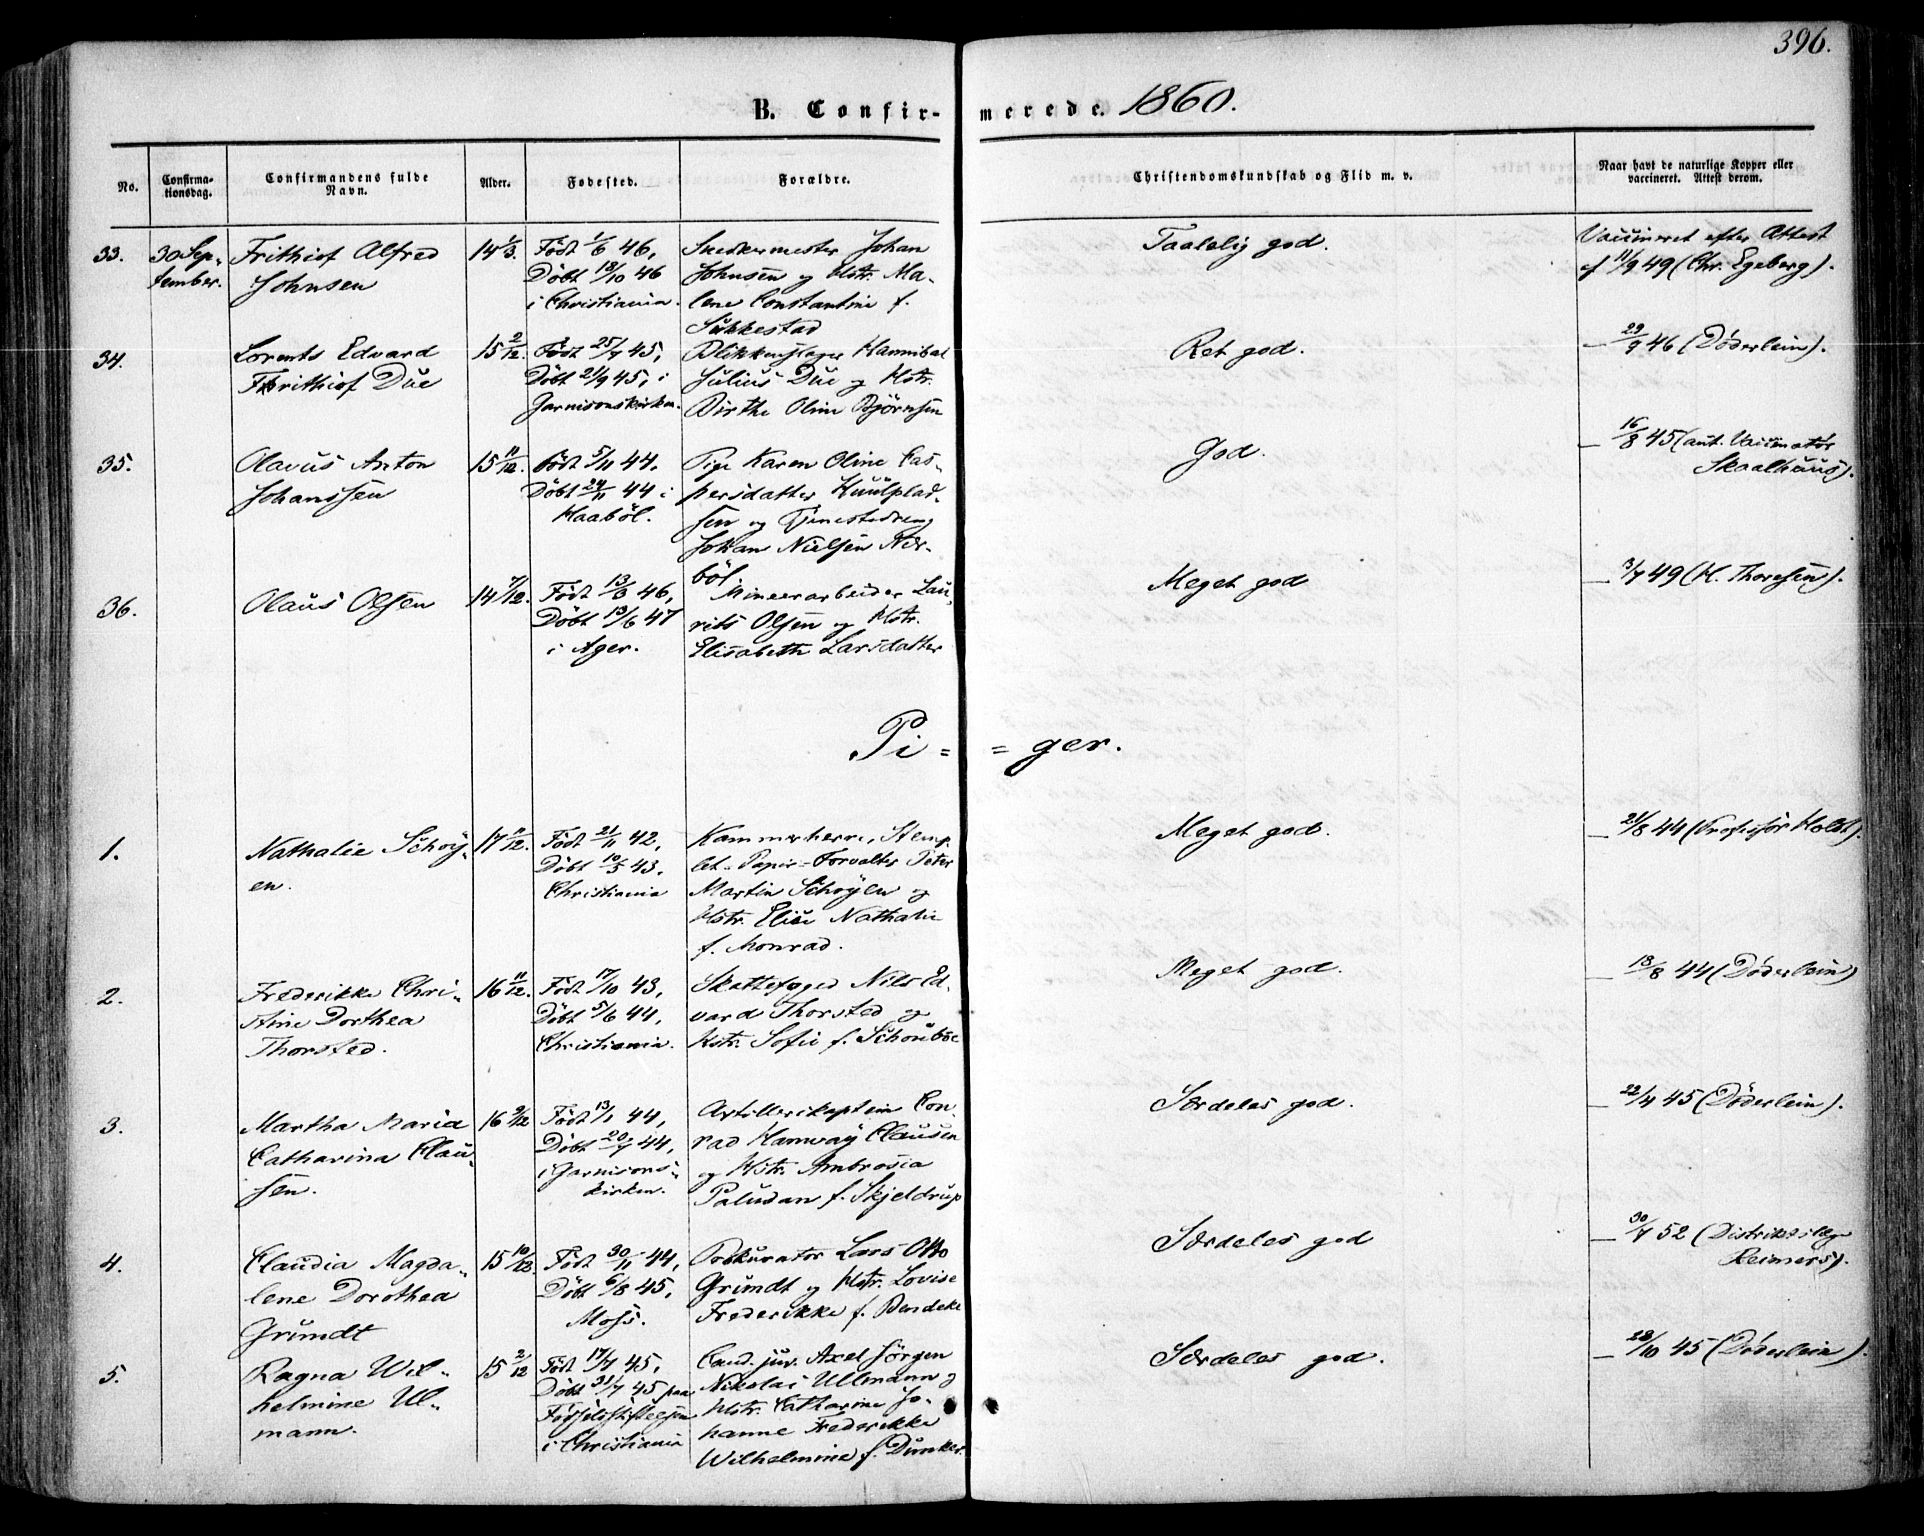 396.
B. Confir- merede. 1860.
No.
Confirma-
tionsdag.
Confirmandens fulde
Navn.
Alder.
Fødested.
Forældre.
Christendomskundskab og Flid m. v.
Naar havt de naturlige Kopper eller
vaccineret. Attest derom.
33.
30 Sep-
tember.
Frithiof Alfred
Johnsen
14 1/3.
Födt 1/6 46,
Döbt 18/10 46
i Christiania.
Snedkermester Johan
Johnsen og Hstr. Ma-
lene Constantine f.
Sukkestad
Taalelig god.
Vaccineret efter Attest
af 11/9 49 (Chr. Egeberg).
34.
Lorents Edvard
Frithiof Due
15 2/12.
Födt 25/7 45,
Döbt 21/9 45, i
Garnisonskirken.
Blikkenslager Hannibal
Julius Due og Hstr.
Birthe Oline Björnsen
Ret god.
— 29/9 46 (Døderlein).
35.
Olavus Anton
Johanssen
15 11/12.
Födt 5/11 44.
Döbt 24/11 44 i
Haaböl.
Pige Karen Oline Cas-
persdatter Huulplad-
sen og Tjenestedreng
Johan Nielsen Nær-
böl
God.
— 16/8 45 (ant. Vaccinatør
Skaalhuus).
36.
Olaus Olsen
14 7/12.
Födt 13/3 46,
Döbt 13/6 47
i Ager.
Mineerarbeider Lau-
rits Olsen og Hstr.
Elisabeth Larsdatter
Meget god
— 3/7 49 (H. Thoresen).
Pi = = ger.
1.
Nathalie Schöy-
en.
17 11/12.
Födt 21/11 42,
Döbt 10/5 43,
Christiania
Kammerherre, Stemp-
let-Papir-Forvalter Peter
Martin Schöyen og
Hstr. Elise Nathalie
f. Monrad.
Meget god.
— 21/8 44 (Professor Holst).
2.
Frederikke Chri-
stine Dorthea
Thorsted.
16 11/12.
Födt 17/10 43,
Döbt 5/6 44,
Christiania.
Skattefoged Nils Ed-
vard Thorsted og
Hstr. Sofie f. Schouboe
Meget god.
— 13/8 44 (Døderlein)
3.
Martha Maria
Catharina Clau-
sen.
16 9/12
Födt 13/1 44,
Döbt 20/7 44,
i Garnisons-
kirken.
Artillerikaptein Con-
rad Hanway Clausen
og Hstr. Ambrosia
Paludan f. Skjeldrup
Særdeles god.
— 22/4 45 (Döderlein).
4.
Claudia Magda-
lene Dorothea
Grundt
15 10/12.
Födt 30/11 44,
Döbt 6/8 45,
Moss.
Prokurator Lars Otto
Grundt og Hstr. Lovise
Frederikke f. Bendeke
Særdeles god
— 30/7 52 (Distriktslæge
Reimers).
5.
Ragna Wil-
helmine Ul-
mann.
15 2/12
Födt 17/7 45,
Döbt 31/7 45 paa
Fødselsstiftelsen
i Christiania
Cand. jur. Axel Jörgen
Nikolai Ullmann og
Hstr. Catharine Jo-
hanne Frederikke
Wilhelmine f. Dunker.
Særdeles god.
— 28/10 45 (Døderlein).